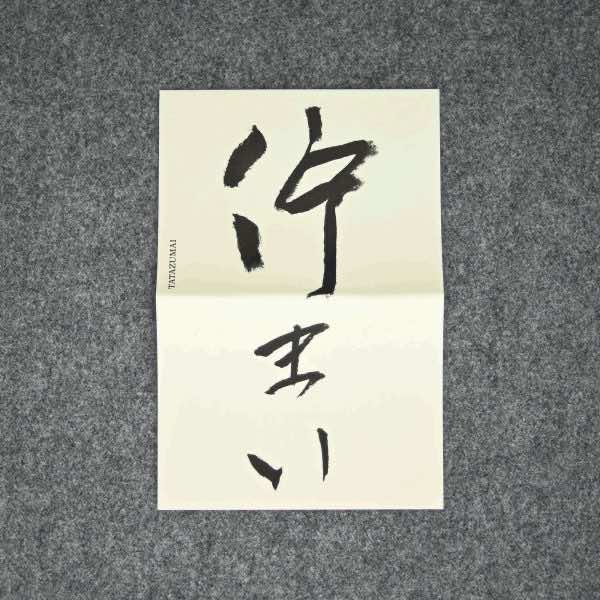 佇まい
TATAZUMAI